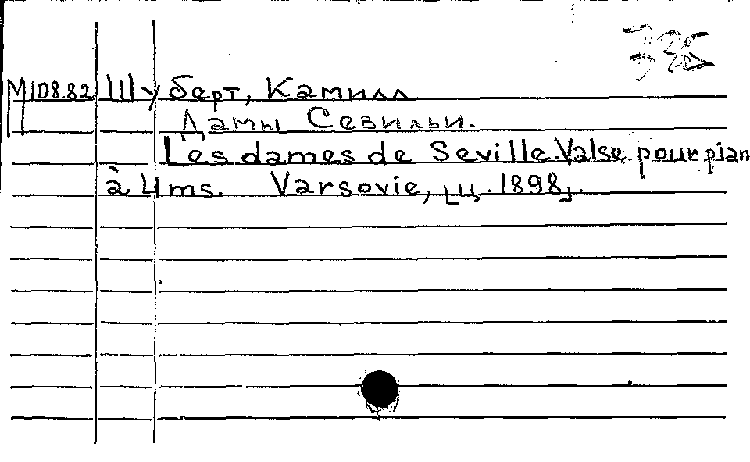 М108.82 Шуберт, Камилл
Дамы Севильи.
Les dames de Seville. Valse pour pian
à 4 ms. Varsovie, [ц. 1898].